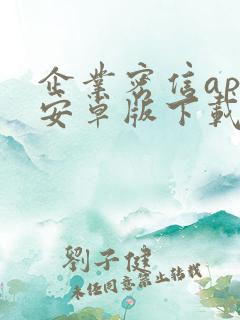 企業密信ap
安卓版下載
劉子健
未经同意禁止转载